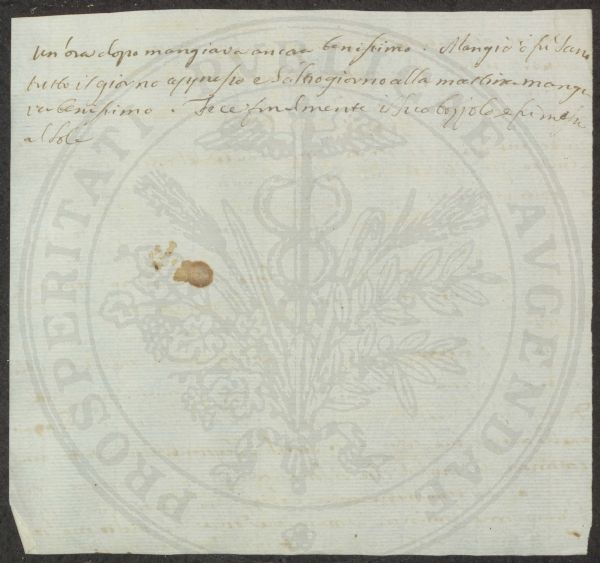 Un'ora dopo mangiava ancora benissimo. Mangiò e fu sano
tutto il giorno appresso e l'altro giorno alla mattina mangia
va benissimo. Fece finalmente il suo bozzolo e fu messo
al sole
PROSPERITATI PUBLICAE AVGENDAE